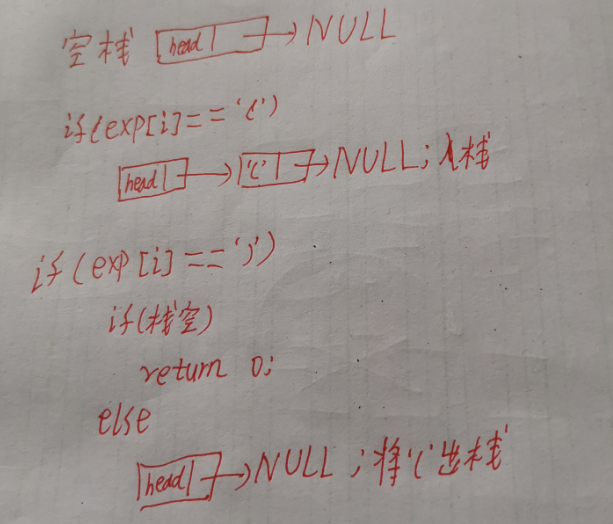 空栈 head → NULL
if(exp[i]=='(')
head → '(' → NULL; 入栈
if(exp[i]==')')
if(栈空)
return 0;
else
head → NULL ; 将'('出栈